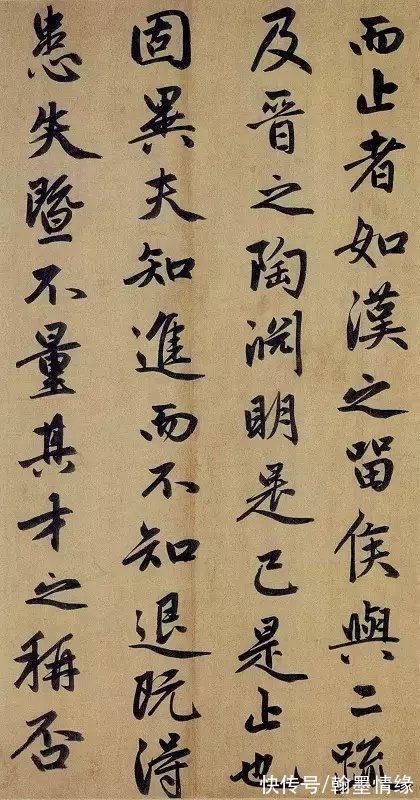 而止者如漢之留侯與二疏
及晉之陶淵明是已是止也
固異夫知進而不知退既得
患失暨不量其才之稱否
快传号/翰墨情缘